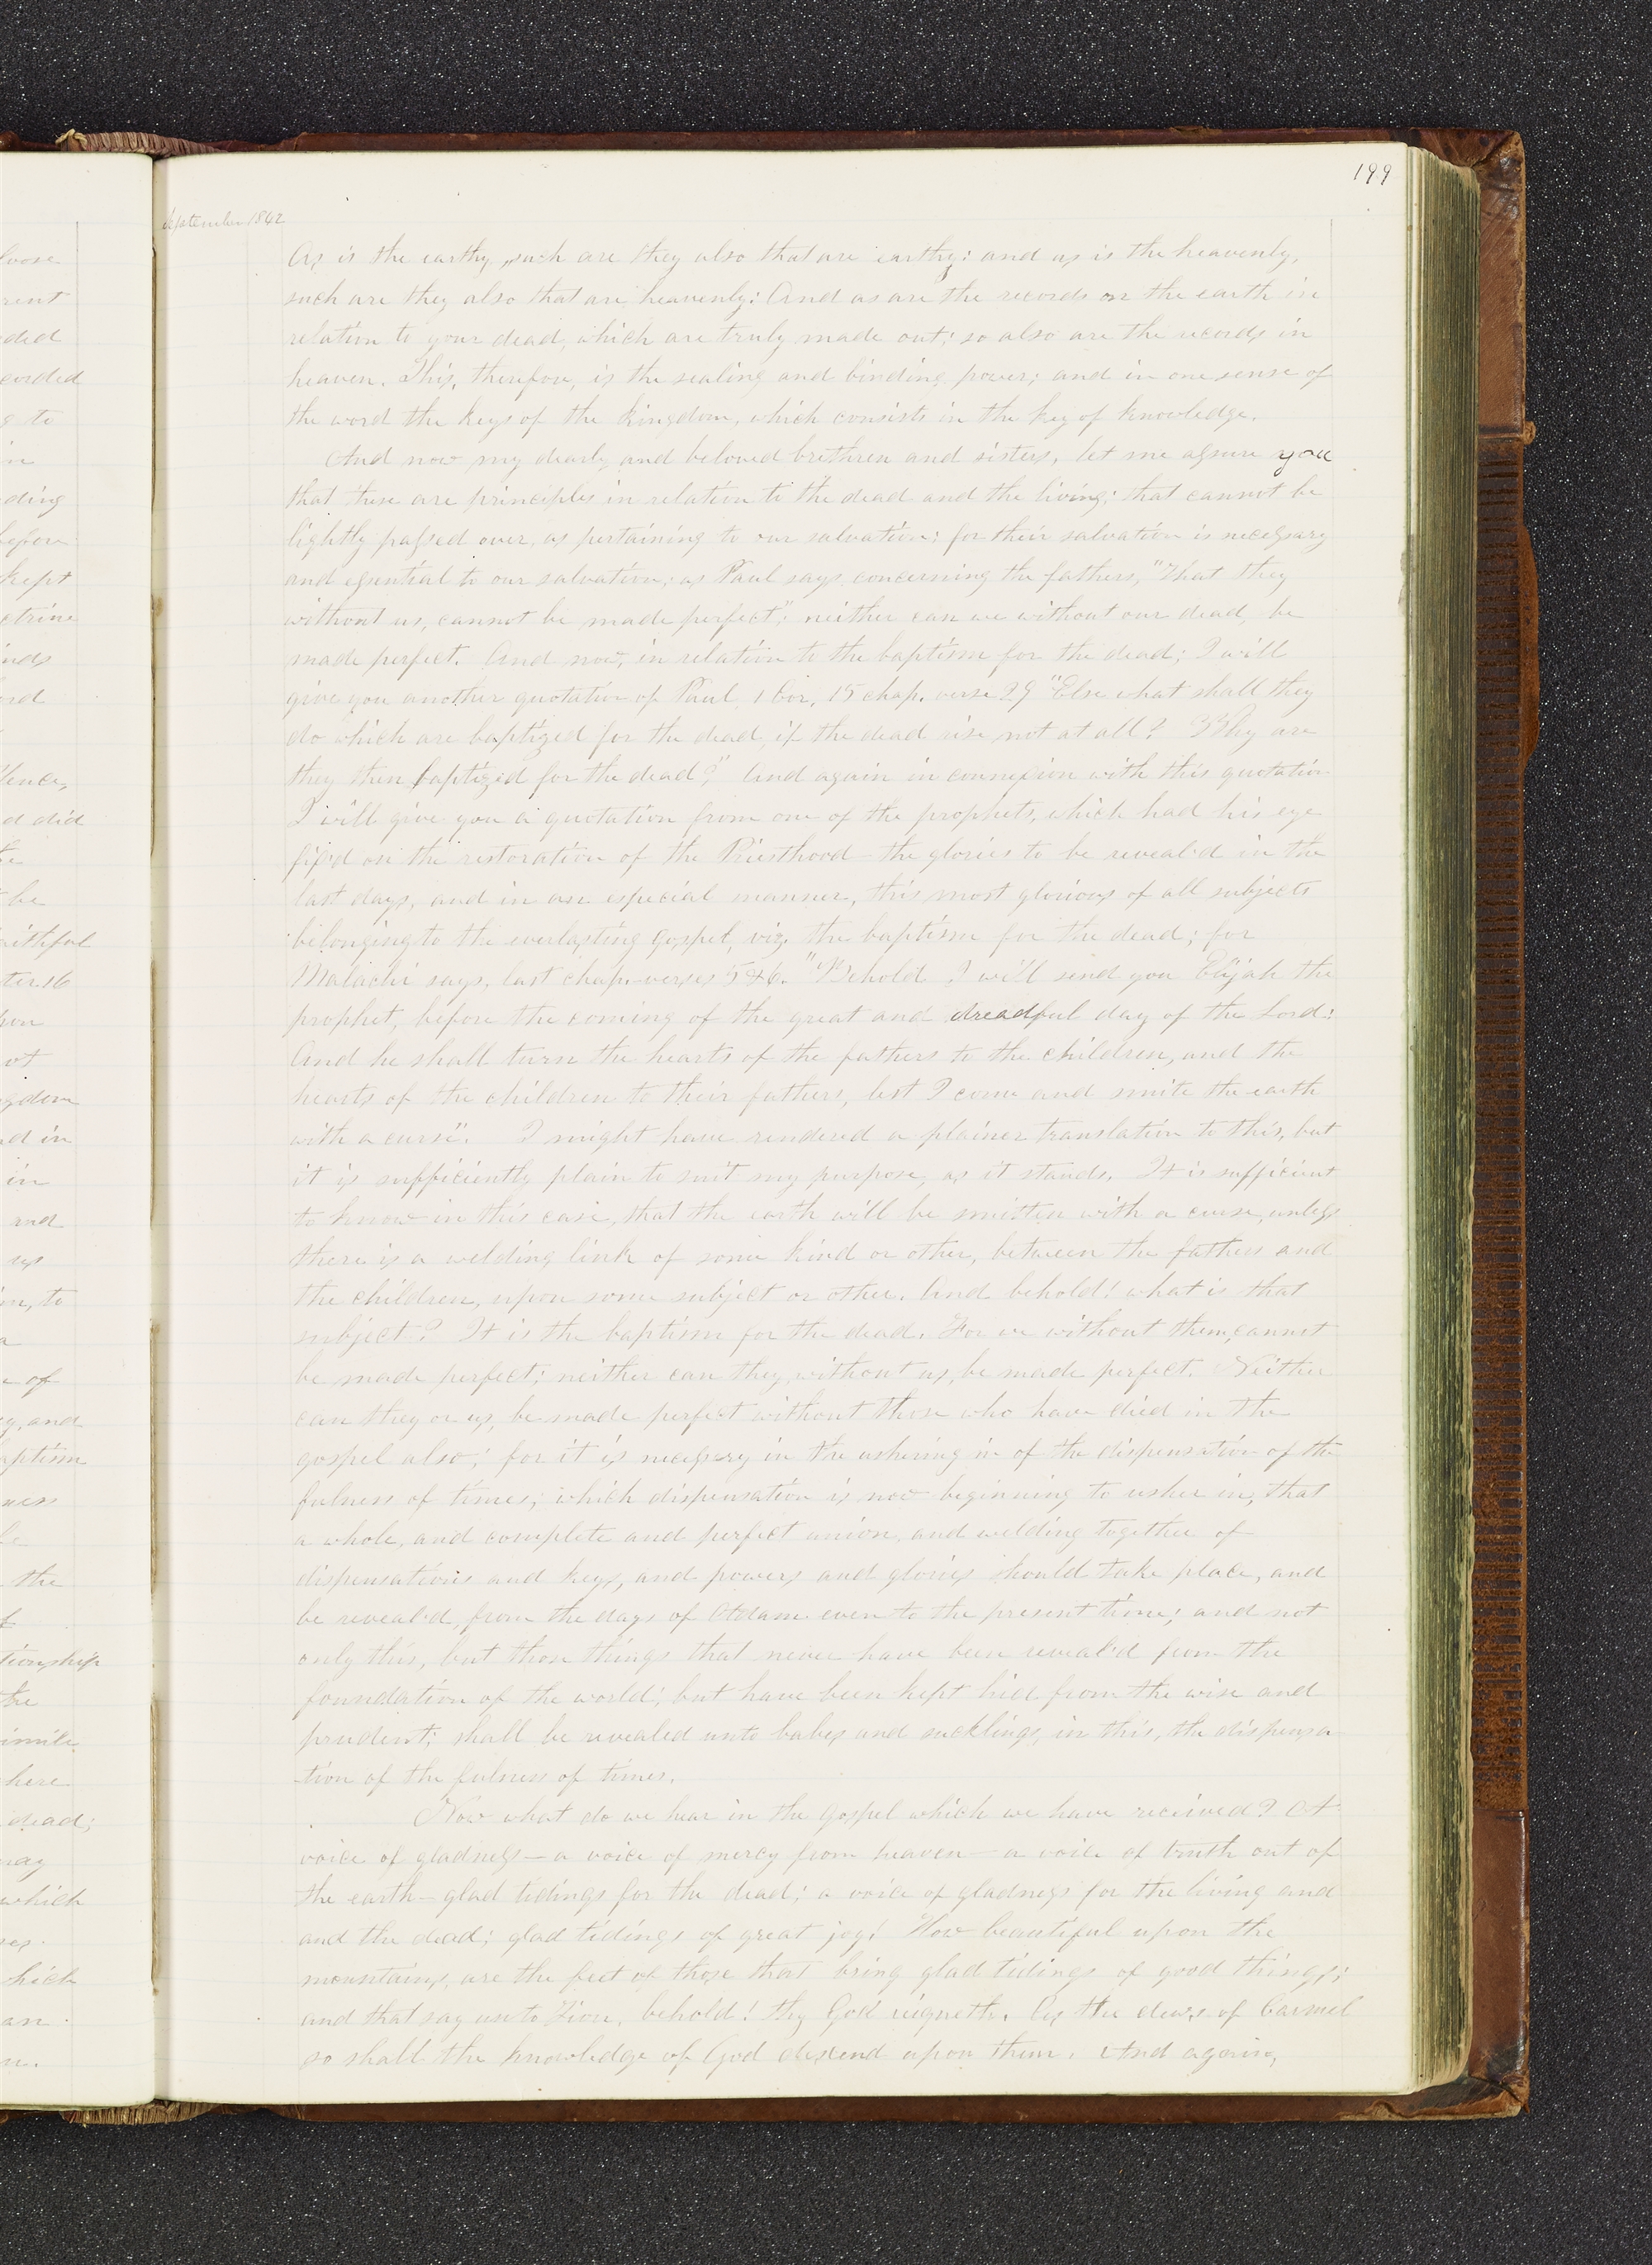 199
September 1842
As is the earthy, such are they also that are earthy: and as is the heavenly,
such are they also that are heavenly: And as are the records on the earth in
relation to your dead, which are truly made out; so also are the records in
heaven. This, therefore, is the sealing and binding power; and in one sense of
the word the keys of the kingdom, which consists in the key of knowledge.
And now my dearly and beloved brethren and sisters, let me assure you
that these are principles in relation to the dead and the living; that cannot be
lightly passed over, as pertaining to our salvation: for their salvation is necessary
and essential to our salvation; as Paul says, concerning the fathers, "That they
without us, cannot be made perfect"; neither can we without our dead, be
made perfect. And now, in relation to the baptism for the dead; I will
give you another quotation of Paul, 1 Cor. 15 chap. verse 29 "Else what shall they
do which are baptized for the dead, if the dead rise not at all? Why are
they then baptized for the dead?" And again in connexion with this quotation
I will give you a quotation from one of the prophets, which had his eye
fix'd on the restoration of the Priesthood - the glories to be reveal'd in the
last days, and in an especial manner, this most glorious of all subjects
belonging to the everlasting gospel, viz. the baptism for the dead; for
Malachi says, last chap. verses 5 & 6. "Behold I will send you Elijah the
prophet, before the coming of the great and dreadful day of the Lord:
And he shall turn the hearts of the fathers to the children, and the
hearts of the children to their fathers, lest I come and smite the earth
with a curse". I might have rendered a plainer translation to this, but
it is sufficiently plain to suit my purpose, as it stands. It is sufficient
to know in this case, that the earth will be smitten with a curse, unless
there is a welding link of some kind or other, between the fathers and
the children, upon some subject or other. And behold! what is that
subject? It is the baptism for the dead. For we without them, cannot
be made perfect; neither can they, without us, be made perfect. Neither
can they or us, be made perfect without those who have died in the
gospel also; for it is necessary in the ushering in of the dispensation of the
fulness of times; which dispensation is now beginning to usher in, that
a whole, and complete and perfect union, and welding together of
dispensations and keys, and powers and glories should take place, and
be reveal'd, from the days of Adam even to the present time; and not
only this, but those things that never have been reveal'd from the
foundation of the world; but have been kept hid from the wise and
prudent; shall be revealed unto babes and sucklings, in this, the dispensa
tion of the fulness of times.
Now what do we hear in the gospel which we have received? A
voice of gladness — a voice of mercy from heaven — a voice of truth out of
the earth — glad tidings for the dead; a voice of gladness for the living and
and the dead; glad tidings of great joy! How beautiful upon the
mountains, are the feet of those that bring glad tidings of good things;
and that say unto Zion, behold! thy God reigneth. As the dews of Carmel
so shall the knowledge of God descend upon them. And again,